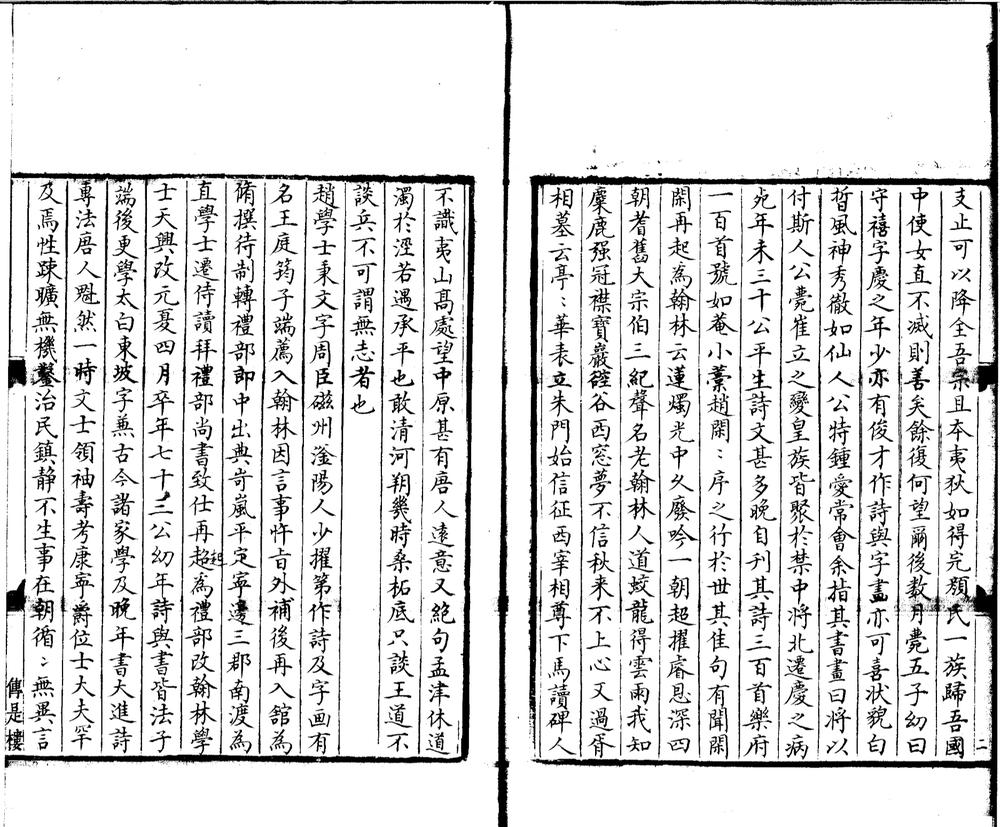 支止可以降全吾宗且本夷狄如得完顏氏一族歸吾國
中使女直不滅則善矣餘復何望爾後数月薨五子幼曰
守禧字慶之年少亦有俊才作詩與字畫亦可喜狀貌白
晳風神秀徹如仙人公特鍾愛常會余指其書畫曰將以
付斯人公薨崔立之變皇族皆聚於禁中將北遷慶之病
死年未三十公平生詩文甚多晚自刊其詩三百首樂府
一百首號如菴小藁趙閑ː序之行於世其佳句有聞閑
閑再起為翰林云蓮燭光中久廢吟一朝超擢睿恩深四
朝耆舊大宗伯三紀聲名老翰林人道蛟龍得雲雨我知
麋鹿强冠襟寶巖 谷西窓夢不信秋来不上心又過胥
相墓云亭ː華表立朱門始信征西宰相尊下馬讀碑人
不識夷山髙處望中原甚有唐人遠意又絕句孟津休道
濁於涇若遇承平也敢清河朔幾時桑柘底只談王道不
談兵不可謂無志者也
趙學士秉文字周臣磁州滏陽人少擢第作詩及字画有
名王庭筠子端薦入翰林因言事忤旨外補後再入舘為
脩撰待制轉禮部郎中出典岢嵐平定寧邊三郡南渡為
直學士遷侍讀拜禮部尚書致仕再起為禮部改翰林學
士天興改元夏四月卒年七十三公幼年詩與書皆法子
端後更學太白東坡字兼古今諸家學及晚年書大進詩
專法唐人魁然一時文士領袖壽考康寧爵位士大夫罕
及焉性踈曠無機鑿治民鎮静不生事在朝循ː無異言
二
傳是樓